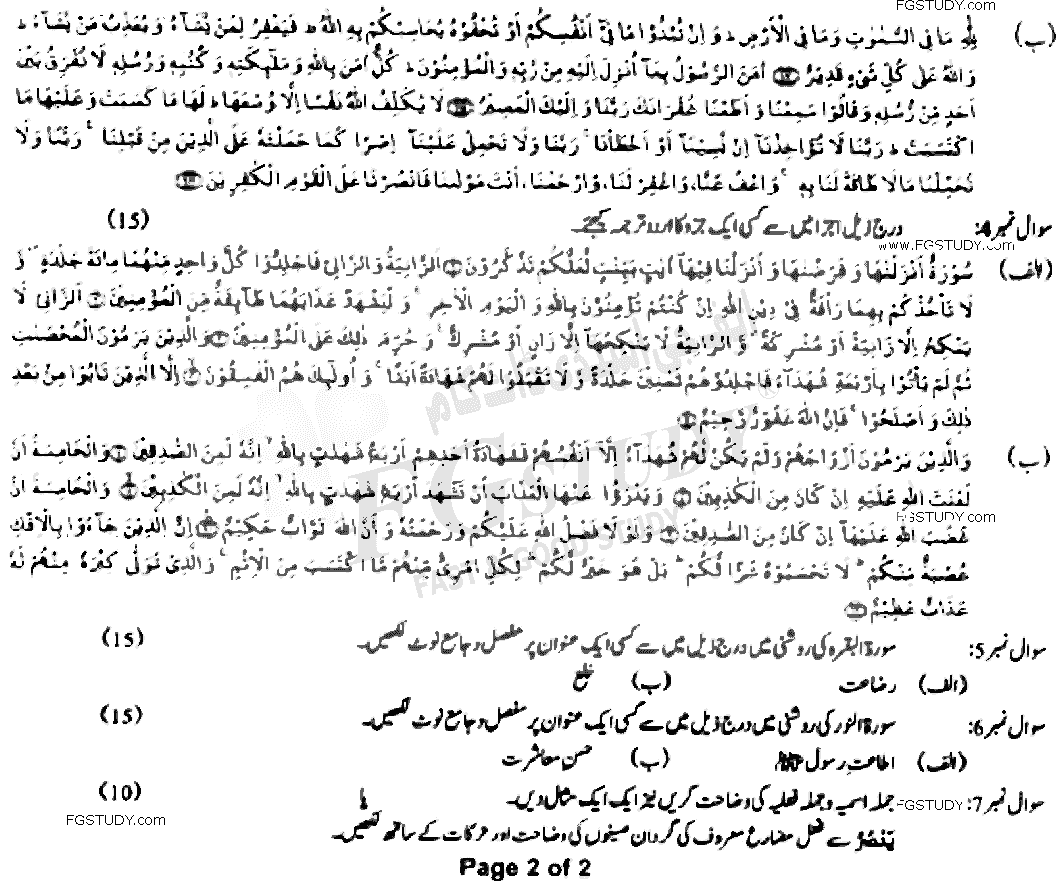 FGSTUDY.com
(ب) لِلّٰهِ مَا فِي السَّمٰوٰتِ وَمَا فِي الْاَرْضِ ط وَ اِنْ تُبْدُوْا مَا فِيْٓ اَنْفُسِكُمْ اَوْ تُخْفُوْهُ يُحَاسِبْكُمْ بِهِ اللّٰهُ ط فَيَغْفِرُ لِمَنْ يَّشَآءُ وَ يُعَذِّبُ مَنْ يَّشَآءُ ط
وَاللّٰهُ عَلٰى كُلِّ شَيْءٍ قَدِيْرٌ اٰمَنَ الرَّسُوْلُ بِمَآ اُنْزِلَ اِلَيْهِ مِنْ رَّبِّهٖ وَالْمُؤْمِنُوْنَ ط كُلٌّ اٰمَنَ بِاللّٰهِ وَمَلٰٓئِكَتِهٖ وَ كُتُبِهٖ وَرُسُلِهٖ لَا نُفَرِّقُ بَيْنَ
اَحَدٍ مِّنْ رُّسُلِهٖ وَقَالُوْا سَمِعْنَا وَ اَطَعْنَا غُفْرَانَكَ رَبَّنَا وَ اِلَيْكَ الْمَصِيْرُ لَا يُكَلِّفُ اللّٰهُ نَفْسًا اِلَّا وُسْعَهَا ط لَهَا مَا كَسَبَتْ وَ عَلَيْهَا مَا
اكْتَسَبَتْ ط رَبَّنَا لَا تُؤَاخِذْنَآ اِنْ نَّسِيْنَآ اَوْ اَخْطَاْنَا رَبَّنَا وَلَا تَحْمِلْ عَلَيْنَآ اِصْرًا كَمَا حَمَلْتَهٗ عَلَى الَّذِيْنَ مِنْ قَبْلِنَا رَبَّنَا وَلَا
تُحَمِّلْنَا مَا لَا طَاقَةَ لَنَا بِهٖ وَاعْفُ عَنَّا، وَاغْفِرْ لَنَا، وَارْحَمْنَا، اَنْتَ مَوْلٰىنَا فَانْصُرْنَا عَلَى الْقَوْمِ الْكٰفِرِيْنَ
سوال نمبر 4: درج ذیل اجزا میں سے کسی ایک جزو کا اردو ترجمہ کیجئے۔ (15)
www.FGSTUDY.com
(الف) سُوْرَةٌ اَنْزَلْنٰهَا وَ فَرَضْنٰهَا وَ اَنْزَلْنَا فِيْهَآ اٰيٰتٍۭ بَيِّنٰتٍ لَّعَلَّكُمْ تَذَكَّرُوْنَ اَلزَّانِيَةُ وَالزَّانِيْ فَاجْلِدُوْا كُلَّ وَاحِدٍ مِّنْهُمَا مِائَةَ جَلْدَةٍ وَّ
لَا تَاْخُذْكُمْ بِهِمَا رَاْفَةٌ فِيْ دِيْنِ اللّٰهِ اِنْ كُنْتُمْ تُؤْمِنُوْنَ بِاللّٰهِ وَ الْيَوْمِ الْاٰخِرِ وَ لْيَشْهَدْ عَذَابَهُمَا طَآئِفَةٌ مِّنَ الْمُؤْمِنِيْنَ اَلزَّانِيْ لَا
يَنْكِحُ اِلَّا زَانِيَةً اَوْ مُشْرِكَةً وَّ الزَّانِيَةُ لَا يَنْكِحُهَآ اِلَّا زَانٍ اَوْ مُشْرِكٌ وَ حُرِّمَ ذٰلِكَ عَلَى الْمُؤْمِنِيْنَ وَالَّذِيْنَ يَرْمُوْنَ الْمُحْصَنٰتِ
ثُمَّ لَمْ يَاْتُوْا بِاَرْبَعَةِ شُهَدَآءَ فَاجْلِدُوْهُمْ ثَمٰنِيْنَ جَلْدَةً وَّ لَا تَقْبَلُوْا لَهُمْ شَهَادَةً اَبَدًا وَ اُولٰٓئِكَ هُمُ الْفٰسِقُوْنَ اِلَّا الَّذِيْنَ تَابُوْا مِنْۢ بَعْدِ
ذٰلِكَ وَ اَصْلَحُوْا فَاِنَّ اللّٰهَ غَفُوْرٌ رَّحِيْمٌ
(ب) وَالَّذِيْنَ يَرْمُوْنَ اَزْوَاجَهُمْ وَلَمْ يَكُنْ لَّهُمْ شُهَدَآءُ اِلَّآ اَنْفُسُهُمْ فَشَهَادَةُ اَحَدِهِمْ اَرْبَعُ شَهٰدٰتٍۭ بِاللّٰهِ اِنَّهٗ لَمِنَ الصّٰدِقِيْنَ وَالْخَامِسَةُ اَنَّ
لَعْنَتَ اللّٰهِ عَلَيْهِ اِنْ كَانَ مِنَ الْكٰذِبِيْنَ وَ يَدْرَؤُا عَنْهَا الْعَذَابَ اَنْ تَشْهَدَ اَرْبَعَ شَهٰدٰتٍۭ بِاللّٰهِ اِنَّهٗ لَمِنَ الْكٰذِبِيْنَ وَالْخَامِسَةَ اَنَّ
FGSTUDY.com
غَضَبَ اللّٰهِ عَلَيْهَآ اِنْ كَانَ مِنَ الصّٰدِقِيْنَ وَلَوْ لَا فَضْلُ اللّٰهِ عَلَيْكُمْ وَرَحْمَتُهٗ وَ اَنَّ اللّٰهَ تَوَّابٌ حَكِيْمٌ اِنَّ الَّذِيْنَ جَآءُوْ بِالْاِفْكِ
عُصْبَةٌ مِّنْكُمْ لَا تَحْسَبُوْهُ شَرًّا لَّكُمْ بَلْ هُوَ خَيْرٌ لَّكُمْ لِكُلِّ امْرِئٍ مِّنْهُمْ مَّا اكْتَسَبَ مِنَ الْاِثْمِ وَالَّذِيْ تَوَلّٰى كِبْرَهٗ مِنْهُمْ لَهٗ
عَذَابٌ عَظِيْمٌ
FGSTUDY
FAST GOOD STUDY
سوال نمبر 5: سورۃ البقرہ کی روشنی میں درج ذیل میں سے کسی ایک عنوان پر مفصل و جامع نوٹ لکھیں۔ (15)
(الف) رضاعت (ب) خلع
سوال نمبر 6: سورۃ النور کی روشنی میں درج ذیل میں سے کسی ایک عنوان پر مفصل و جامع نوٹ لکھیں۔ (15)
(الف) اطاعتِ رسول ﷺ (ب) حسنِ معاشرت
سوال نمبر 7: جملہ اسمیہ و جملہ فعلیہ کی وضاحت کریں نیز ایک ایک مثال دیں۔ (10)
FGSTUDY.com
یا
FGSTUDY.com
یَنْصُرُ سے فعل مضارع معروف کی گردان صیغوں کی وضاحت اور حرکات کے ساتھ لکھیں۔
Page 2 of 2